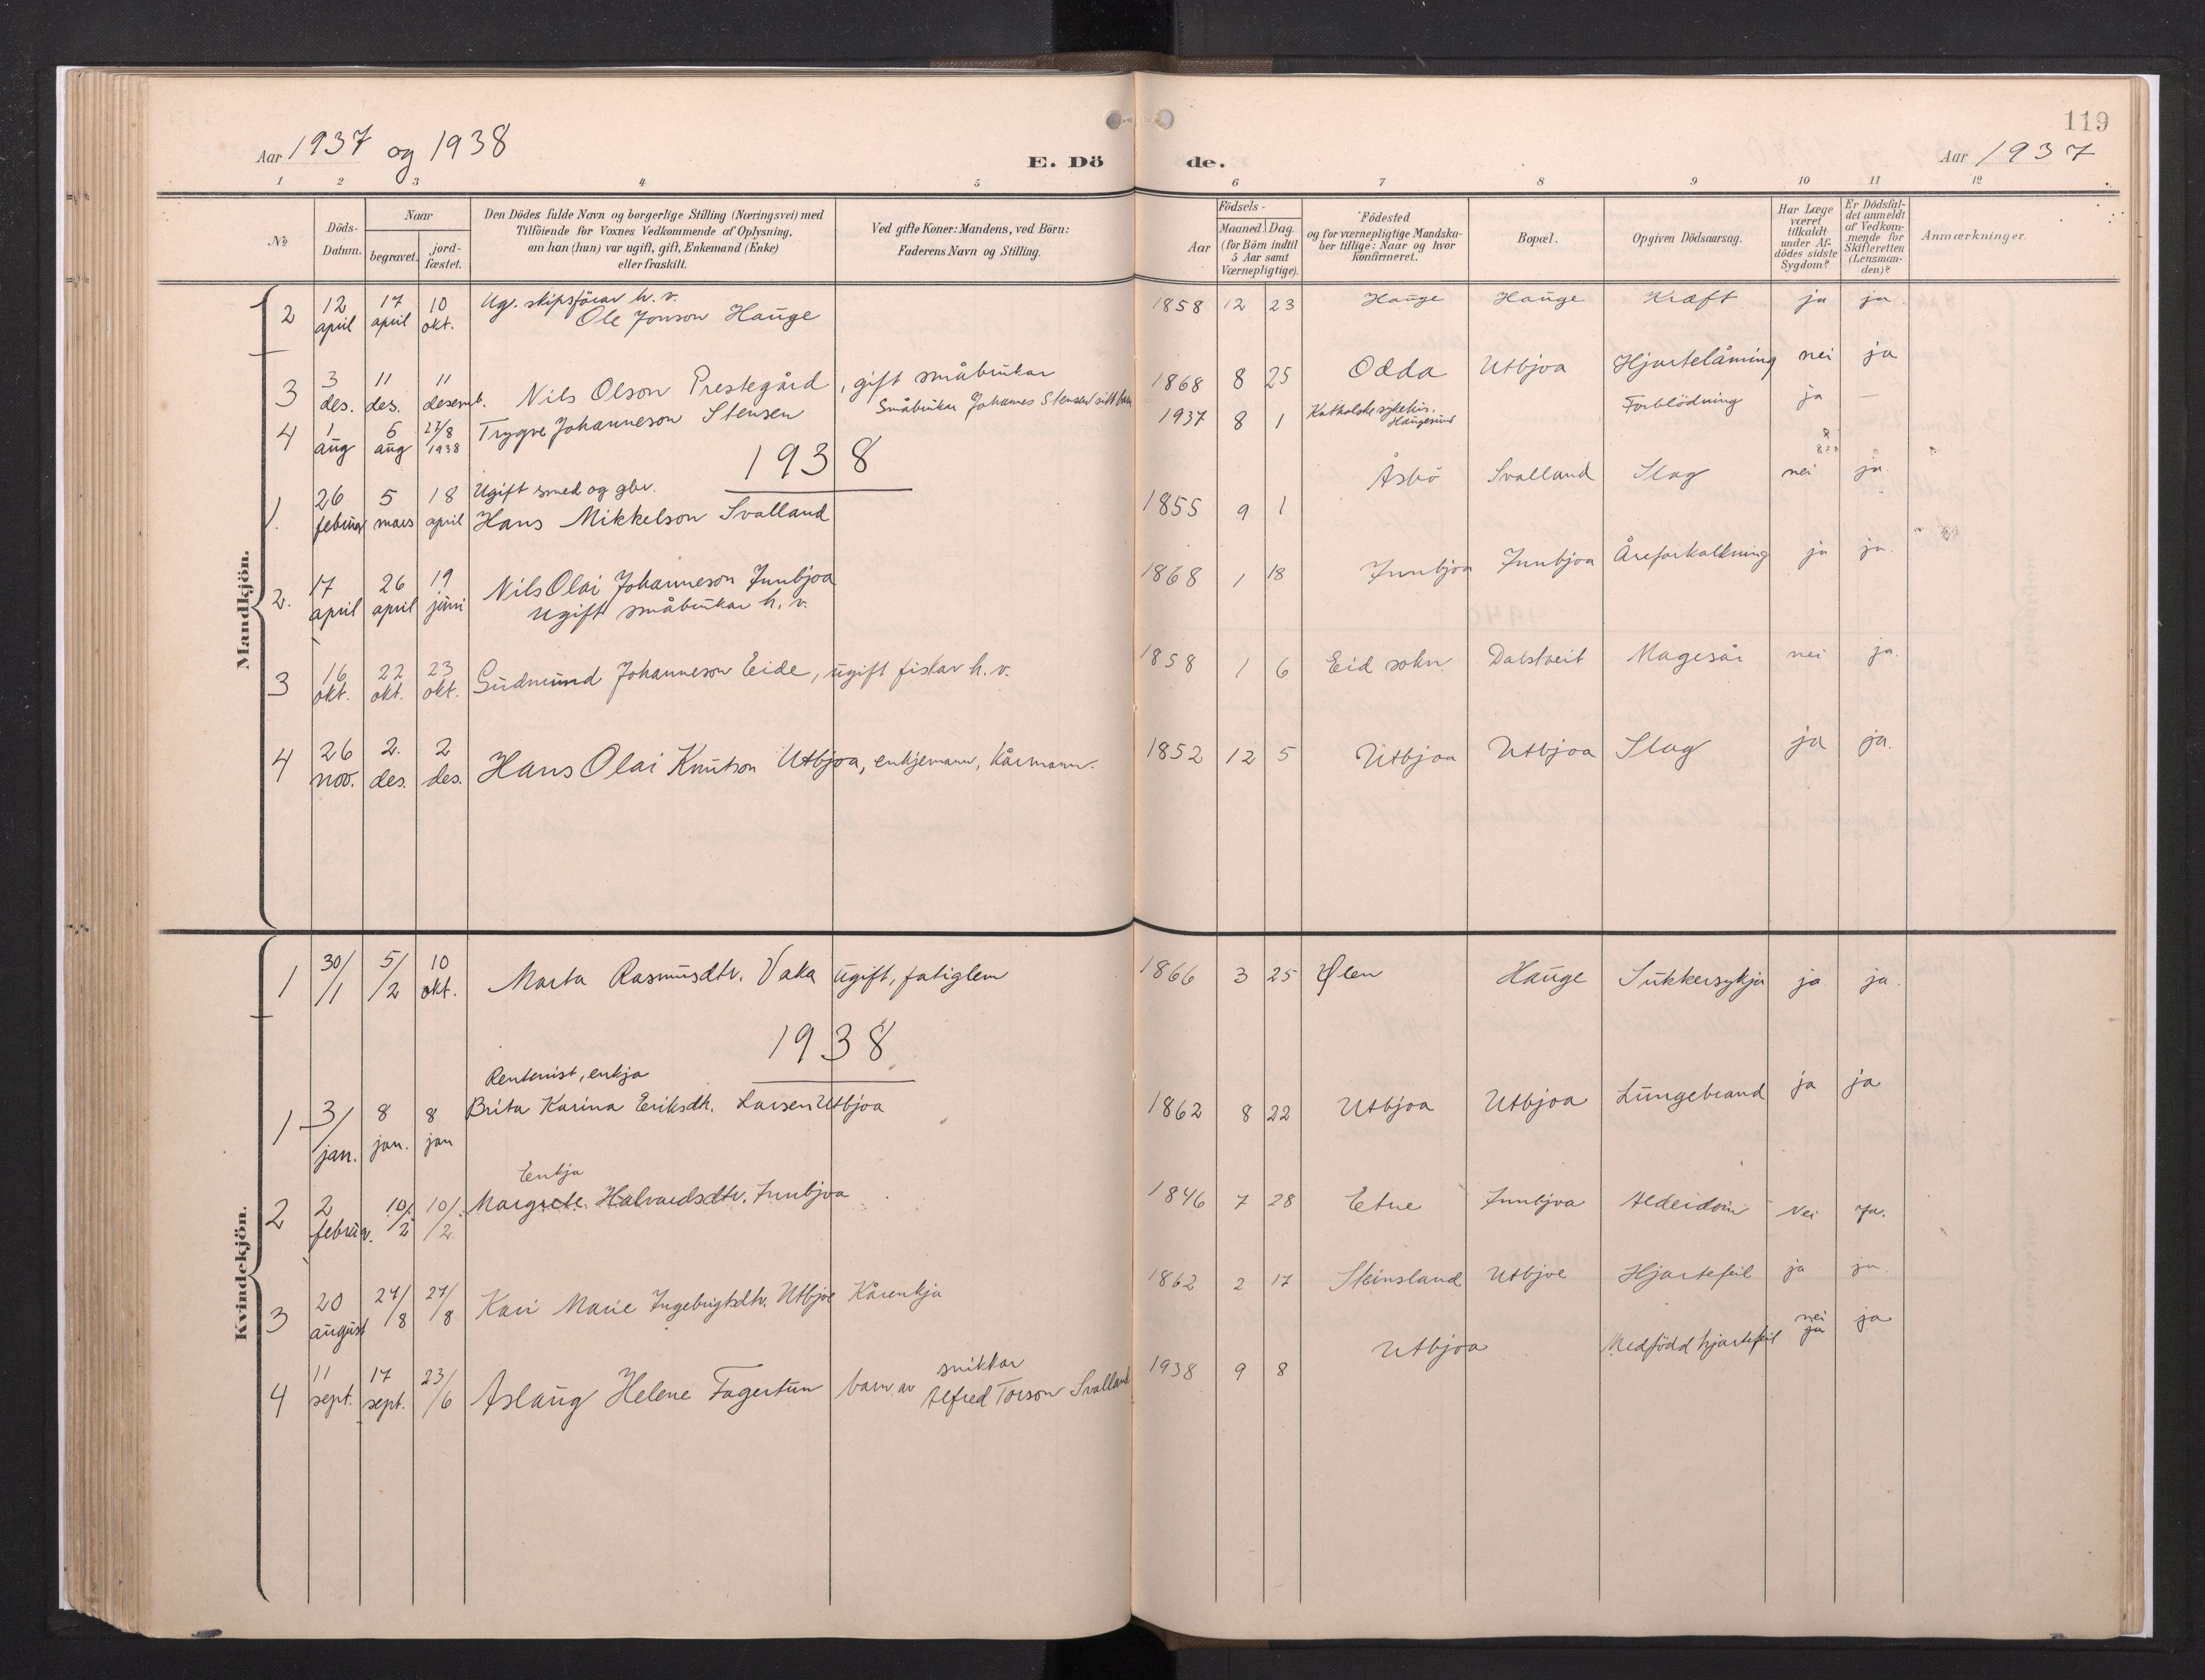 119
Aar 1937 og 1938
E. Dö de.
Aar 1937
1 2 3 4 5 6 7 8 9 10 11 12
№
Döds-Datum.
Naar
begravet.
jord-fæstet.
Den Dödes fulde Navn og borgerlige Stilling (Næringsvei) med
Tilföiende for Voxnes Vedkommende af Oplysning,
om han (hun) var ugift, gift, Enkemand (Enke)
eller fraskilt.
Ved gifte Koner: Mandens, ved Börn:
Faderens Navn og Stilling.
Födsels-
Aar
Maaned. Dag.
(for Börn indtil
5 Aar samt
Værnepligtige).
Födested
og for værnepligtige Mandska-
ber tillige: Naar og hvor
Konfirmeret.
Bopæl.
Opgiven Dödsaarsag.
Har Læge
været
tilkaldt
under Af-
dödes sidste
Sygdom?
Er Dödsfal-
det anmeldt
af Vedkom-
mende for
Skifteretten
(Lensman-
den)?
Anmærkninger.
Mandkjön.
2 12 april 17 april 10 okt. Ug. skipsförar h. v. Ole Jonson Hauge 1858 12 23 Hauge Hauge Kræft ja ja.
3 3 des. 11 des. 11 desemb. Nils Olson Prestegård, gift småbrukar 1868 8 25 Odda Utbjoa Hjartelåming nei ja
4 1 aug 6 aug 27/8 1938 Trygve Johanneson Stensen Småbrukar Johannes Stensen sitt barn 1937 8 1 Katholske sykehus, Haugesund Forblödning ja —
1938
1. 26 februar 5 mars 18 april Ugift smed og gbr. Hans Mikkelson Svalland 1855 9 1 Åsbö Svalland Slag nei ja.
2. 17 april 26 april 19 juni Nils Olai Johanneson Innbjoa ugift småbrukar h. v. 1868 1 18 Innbjoa Innbjoa Åreforkalkning ja ja.
3 16 okt. 22 okt. 23 okt. Gudmund Johanneson Eide, ugift fiskar h. v. 1858 1 6 Eid sokn Dalstveit Magesår nei ja.
4 26 nov. 2. des. 2 des. Hans Olai Knutson Utbjoa, enkjemann, kårmann. 1852 12 5 Utbjoa Utbjoa Slag ja ja.
Kvindekjön.
1 30/1 5/2 10 okt. Marta Rasmusdtr. Vaka ugift, fatiglem 1866 3 25 Ølen Hauge Sukkersykja ja ja.
1938
1 3/jan. 8 jan. 8 jan Rentenist, enkja Brita Karina Eriksdtr. Larsen Utbjoa 1862 8 22 Utbjoa Utbjoa Lungebrand ja ja
2 2 februar. 10/2 10/2 Enkja Margrete Halvardsdtr. Innbjoa 1846 7 28 Etne Innbjoa Alderdom Nei Ja.
3 20 august 27/8 27/8 Kari Marie Ingebrigtsdtr. Utbjoe Kårenkja 1862 2 17 Steinsland Utbjoe Hjartefeil ja ja.
4 11 sept. 17 sept. 23/6 Aslaug Helene Fagertun barn av snikkar Alfred Torson Svalland 1938 9 8 Utbjoa Medfödd hjartefeil nei ja ja